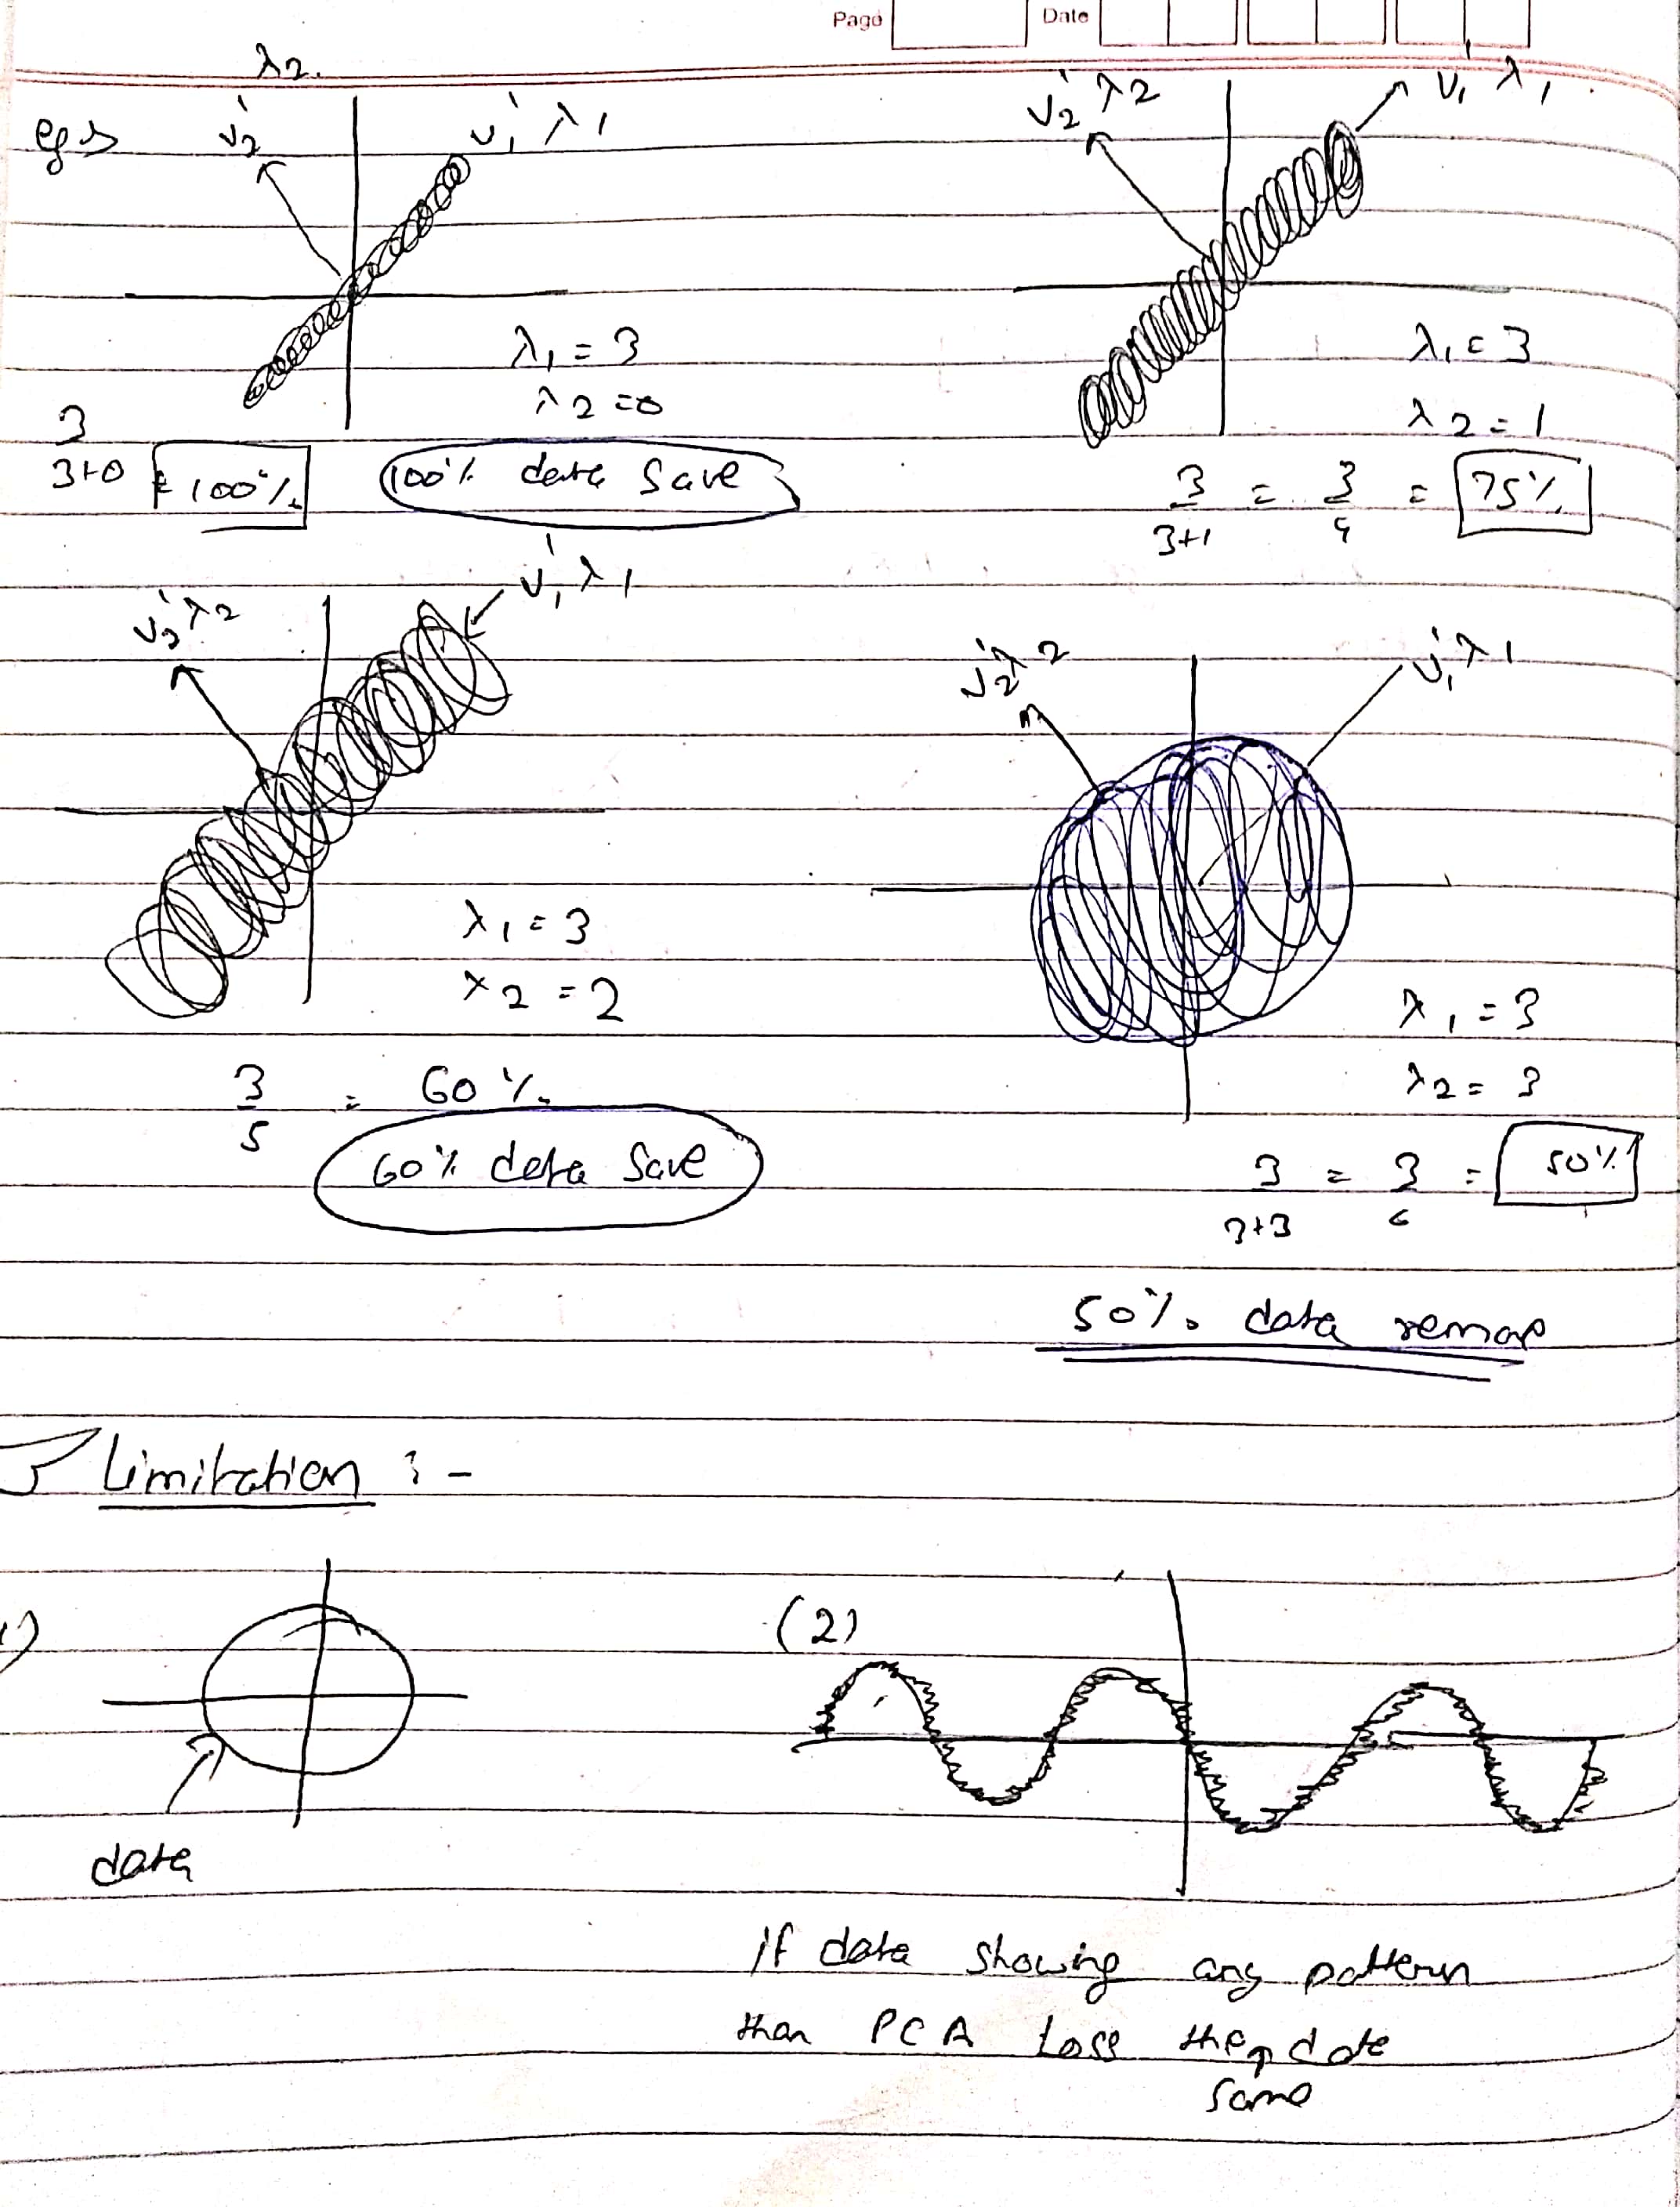 Page Date
λ2.
eg →
v2' v1' λ1
λ1 = 3
λ2 = 0
3
3+0 = 100%
100% data Save
v2' λ2 v1' λ1
λ1 = 3
λ2 = 1
3 = 3 = 75%
3+1 4
v2' λ2 v1' λ1
λ1 = 3
λ2 = 2
3 = 60%
5
60% data Save
v2' λ2 v1' λ1
λ1 = 3
λ2 = 3
3 = 3 = 50%
3+3 6
50% data remap
Limitation :-
data
(2)
if data showing any pattern
than PCA Loss the date
some